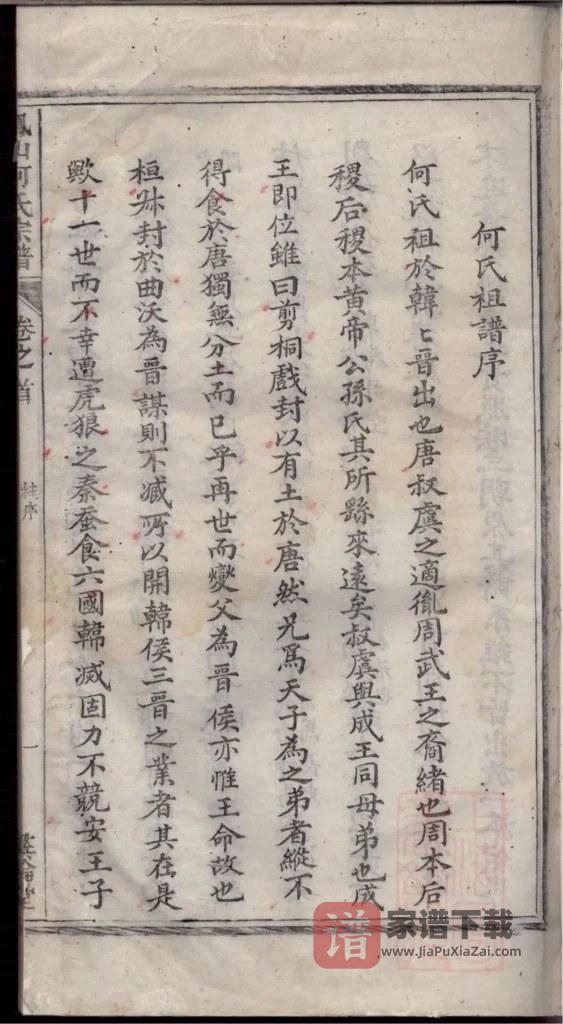 何氏祖譜序
何氏祖於韓〻晉出也唐叔虞之適胤周武王之裔緒也周本后
稷后稷本黃帝公孫氏其所繇來遠矣叔虞與成王同母弟也成
王即位雖曰剪桐戲封以有土於唐然兄爲天子為之弟者縱不
得食於唐獨無分土而已乎再世而變父為晉侯亦惟王命故也
桓叔封於曲沃為晉謀則不減所以開韓侯三晉之業者其在是
歟十一世而不幸遭虎狼之秦蚕食六國韓减固力不競安王子
鳳山何氏宗譜
卷之首
序
一
譜
家谱下载
www.JiaPuXiaZai.com